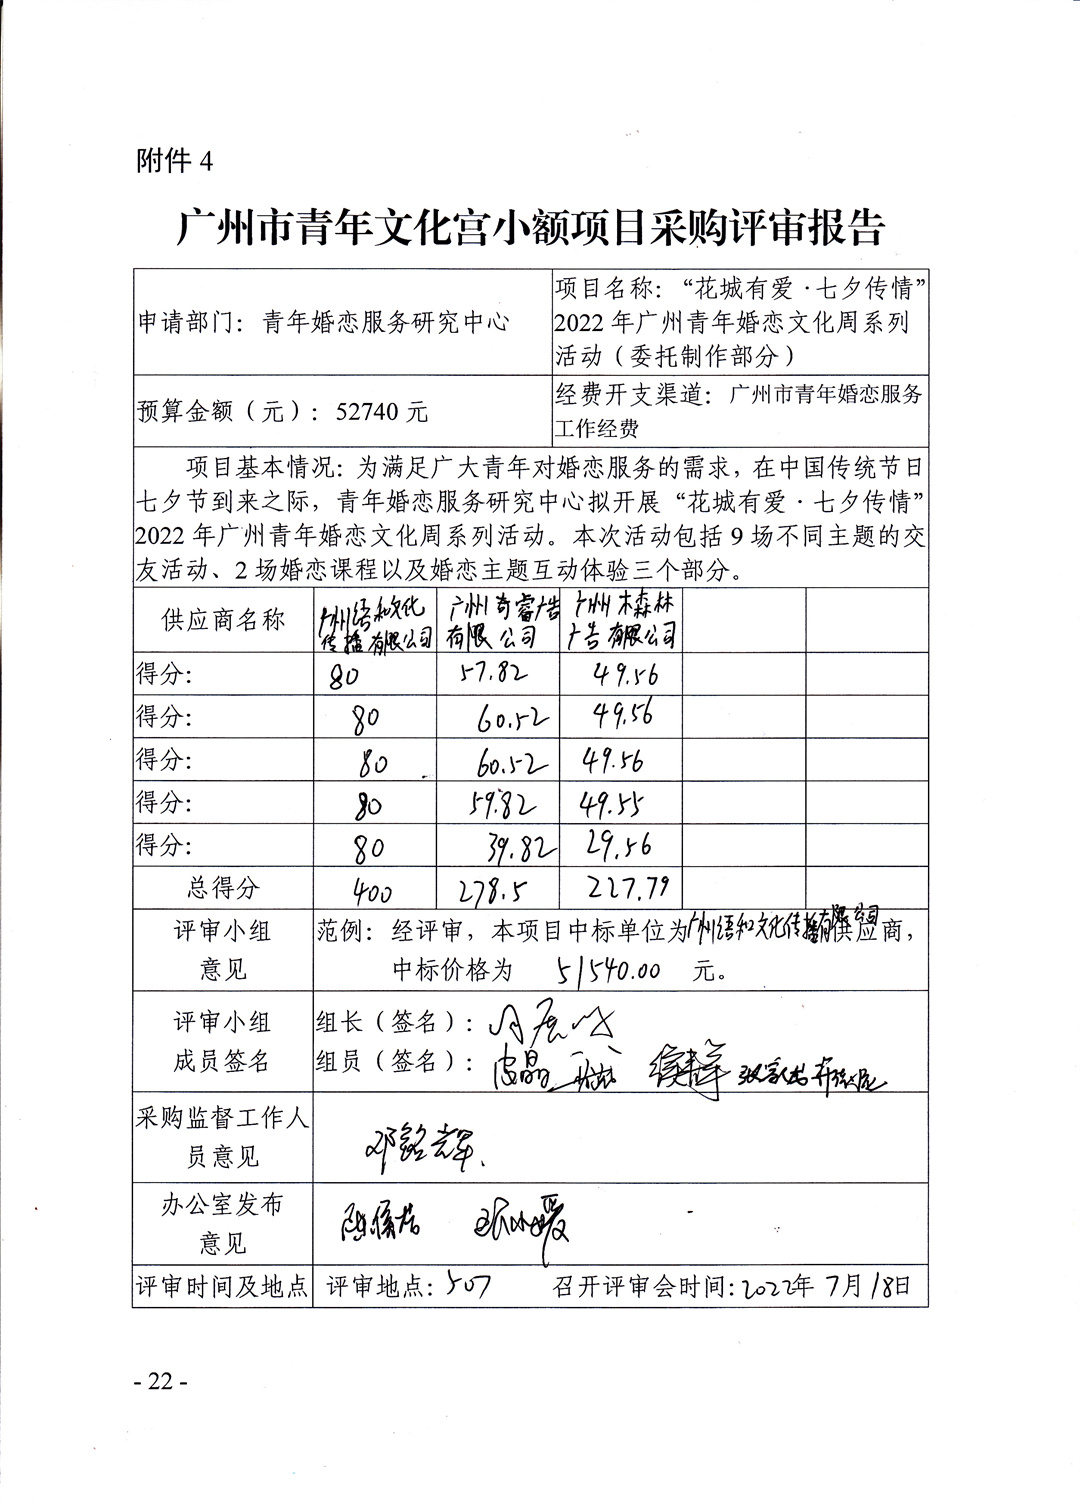 附件 4
广州市青年文化宫小额项目采购评审报告
申请部门：青年婚恋服务研究中心
项目名称：“花城有爱·七夕传情”
2022 年广州青年婚恋文化周系列
活动（委托制作部分）
预算金额（元）：52740 元
经费开支渠道：广州市青年婚恋服务
工作经费
项目基本情况：为满足广大青年对婚恋服务的需求，在中国传统节日
七夕节到来之际，青年婚恋服务研究中心拟开展“花城有爱·七夕传情”
2022 年广州青年婚恋文化周系列活动。本次活动包括 9 场不同主题的交
友活动、2 场婚恋课程以及婚恋主题互动体验三个部分。
供应商名称
广州语和文化
传播有限公司
广州奇睿广告
有限公司
广州木森林
广告有限公司
得分： 80 57.82 49.56
得分： 80 60.52 49.56
得分： 80 60.52 49.56
得分： 80 59.82 49.55
得分： 80 39.82 29.56
总得分 400 278.5 227.79
评审小组
意见
范例：经评审，本项目中标单位为广州语和文化传播有限公司供应商，
中标价格为 51540.00 元。
评审小组
成员签名
组长（签名）：
组员（签名）：皮晶
采购监督工作人
员意见
邓铭辉
办公室发布
意见
评审时间及地点 评审地点：507 召开评审会时间：2022年7月18日
- 22 -